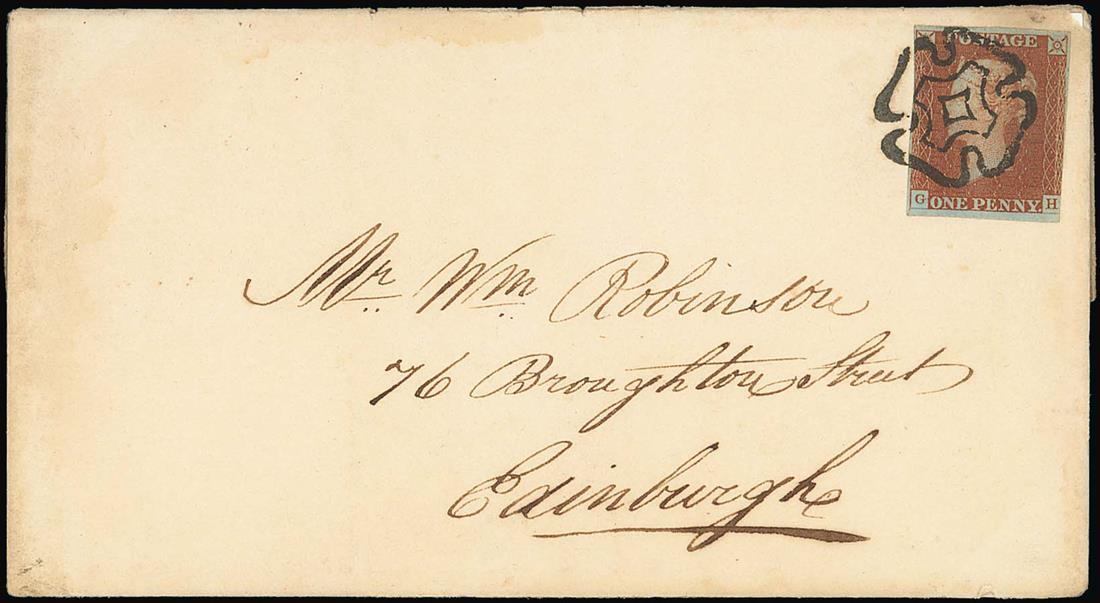 POSTAGE
G ONE PENNY. H
Mr. Wm. Robinson
76 Broughton Street
Edinburgh